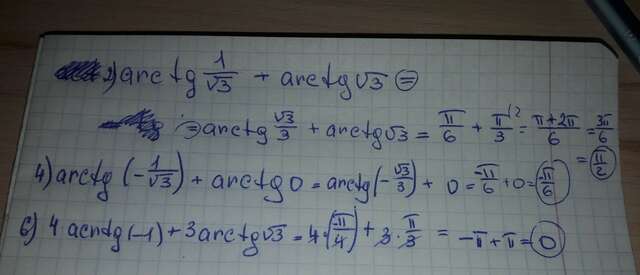 2) arctg 1/√3 + arctg √3 =
= arctg √3/3 + arctg √3 = π/6 + π/3 ^(2 = (π+2π)/6 = 3π/6
= π/2
4) arctg (-1/√3) + arctg 0 = arctg (-√3/3) + 0 = -π/6 + 0 = -π/6
6) 4 acrtg (-1) + 3 arctg √3 = 4·(-π/4) + 3·π/3 = -π + π = 0